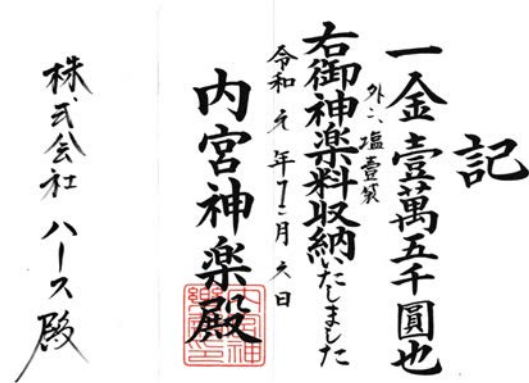 記
一金壹萬五千圓也
外ニ、塩壹袋
右御神楽料収納いたしました
令和元年 月 日
内宮神楽殿
株式会社ハース殿